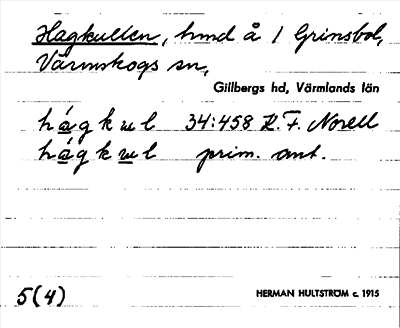 Hagkullen, hmd å 1 Grinsbol,
Värmskogs sn,
Gillbergs hd, Värmlands län
hágkul 34:458 R. F. Norell
hágkul prim. ant.
5(4) HERMAN HULTSTRÖM c. 1915